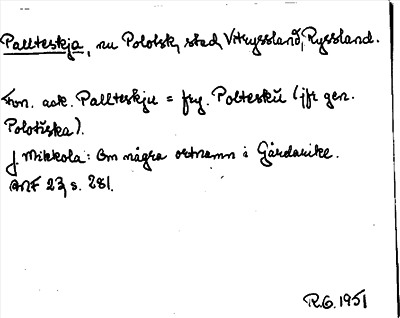 Pallteskja, nu Polotsk, stad, Vitryssland, Ryssland.
Fvn. ack. Pallteskju = fry. Polteskŭ (jfr gen.
Polotĭska).
J. Mikkola: Om några ortnamn i Gårdarike.
ANF 23, s. 281.
R.G. 1951